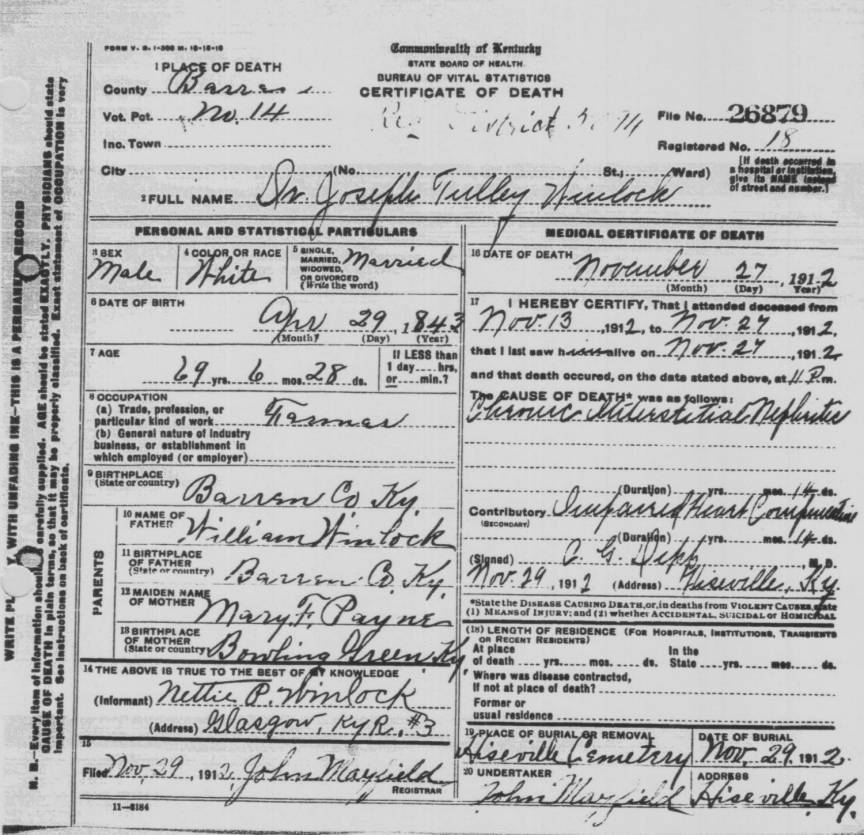 FORM V. S. 1-300 M. 10-18-10
Commonwealth of Kentucky
STATE BOARD OF HEALTH.
BUREAU OF VITAL STATISTICS
CERTIFICATE OF DEATH
1 PLACE OF DEATH
County Barren
Vot. Pct. No. 14
Inc. Town
District
File No. 26879
Registered No. 18
City (No. St.; Ward)
[If death occurred in a hospital or institution, give its NAME instead of street and number.]
2 FULL NAME Dr. Joseph Tulley Winlock
PERSONAL AND STATISTICAL PARTICULARS
3 SEX Male
4 COLOR OR RACE White
5 SINGLE, MARRIED, WIDOWED, OR DIVORCED (Write the word) Married
6 DATE OF BIRTH
Apr 29, 1843
(Month) (Day) (Year)
7 AGE
69 yrs. 6 mos. 28 ds.
If LESS than 1 day.....hrs, or.....min.?
8 OCCUPATION
(a) Trade, profession, or particular kind of work Farmer
(b) General nature of industry business, or establishment in which employed (or employer)
9 BIRTHPLACE
(State or country) Barren Co Ky.
PARENTS
10 NAME OF FATHER William Winlock
11 BIRTHPLACE OF FATHER (State or country) Barren Co. Ky.
12 MAIDEN NAME OF MOTHER Mary F. Payne
13 BIRTHPLACE OF MOTHER (State or country) Bowling Green Ky
14 THE ABOVE IS TRUE TO THE BEST OF MY KNOWLEDGE
(Informant) Nettie P. Winlock
(Address) Glasgow, Ky R. #3
15
Filed Nov, 29, 1912, John Mayfield
REGISTRAR
11-6184
MEDICAL CERTIFICATE OF DEATH
16 DATE OF DEATH
November 27, 1912
(Month) (Day) Year)
17 I HEREBY CERTIFY, That I attended deceased from
Nov. 13, 1912, to Nov. 27, 1912,
that I last saw him alive on Nov. 27, 1912
and that death occured, on the date stated above, at 11 P.m.
The CAUSE OF DEATH* was as follows:
Chronic Interstitial Nephritis
(Duration) yrs. mos. 14 ds.
Contributory Impaired Heart
(SECONDARY)
(Duration) yrs. mos. 14 ds.
(Signed) C. G. Depp M. D.
Nov. 29, 1912 (Address) Hiseville, Ky.
*State the DISEASE CAUSING DEATH, or, in deaths from VIOLENT CAUSES, state
(1) MEANS OF INJURY; and (2) whether ACCIDENTAL, SUICIDAL or HOMICIDAL
(18) LENGTH OF RESIDENCE (FOR HOSPITALS, INSTITUTIONS, TRANSIENTS OR RECENT RESIDENTS)
At place In the
of death yrs. mos. ds. State yrs. mos. ds.
Where was disease contracted,
If not at place of death?
Former or
usual residence
19 PLACE OF BURIAL OR REMOVAL
Hiseville Cemetery
DATE OF BURIAL
Nov. 29. 1912.
20 UNDERTAKER
John Mayfield
ADDRESS
Hiseville Ky.
WRITE WITH UNFADING INK—THIS IS A PERMANENT RECORD
N. B.—Every item of information should carefully supplied. AGE should be stated EXACTLY. PHYSICIANS should state
CAUSE OF DEATH in plain terms, so that it may be properly classified. Exact statement of OCCUPATION is very
important. See instructions on back of certificate.